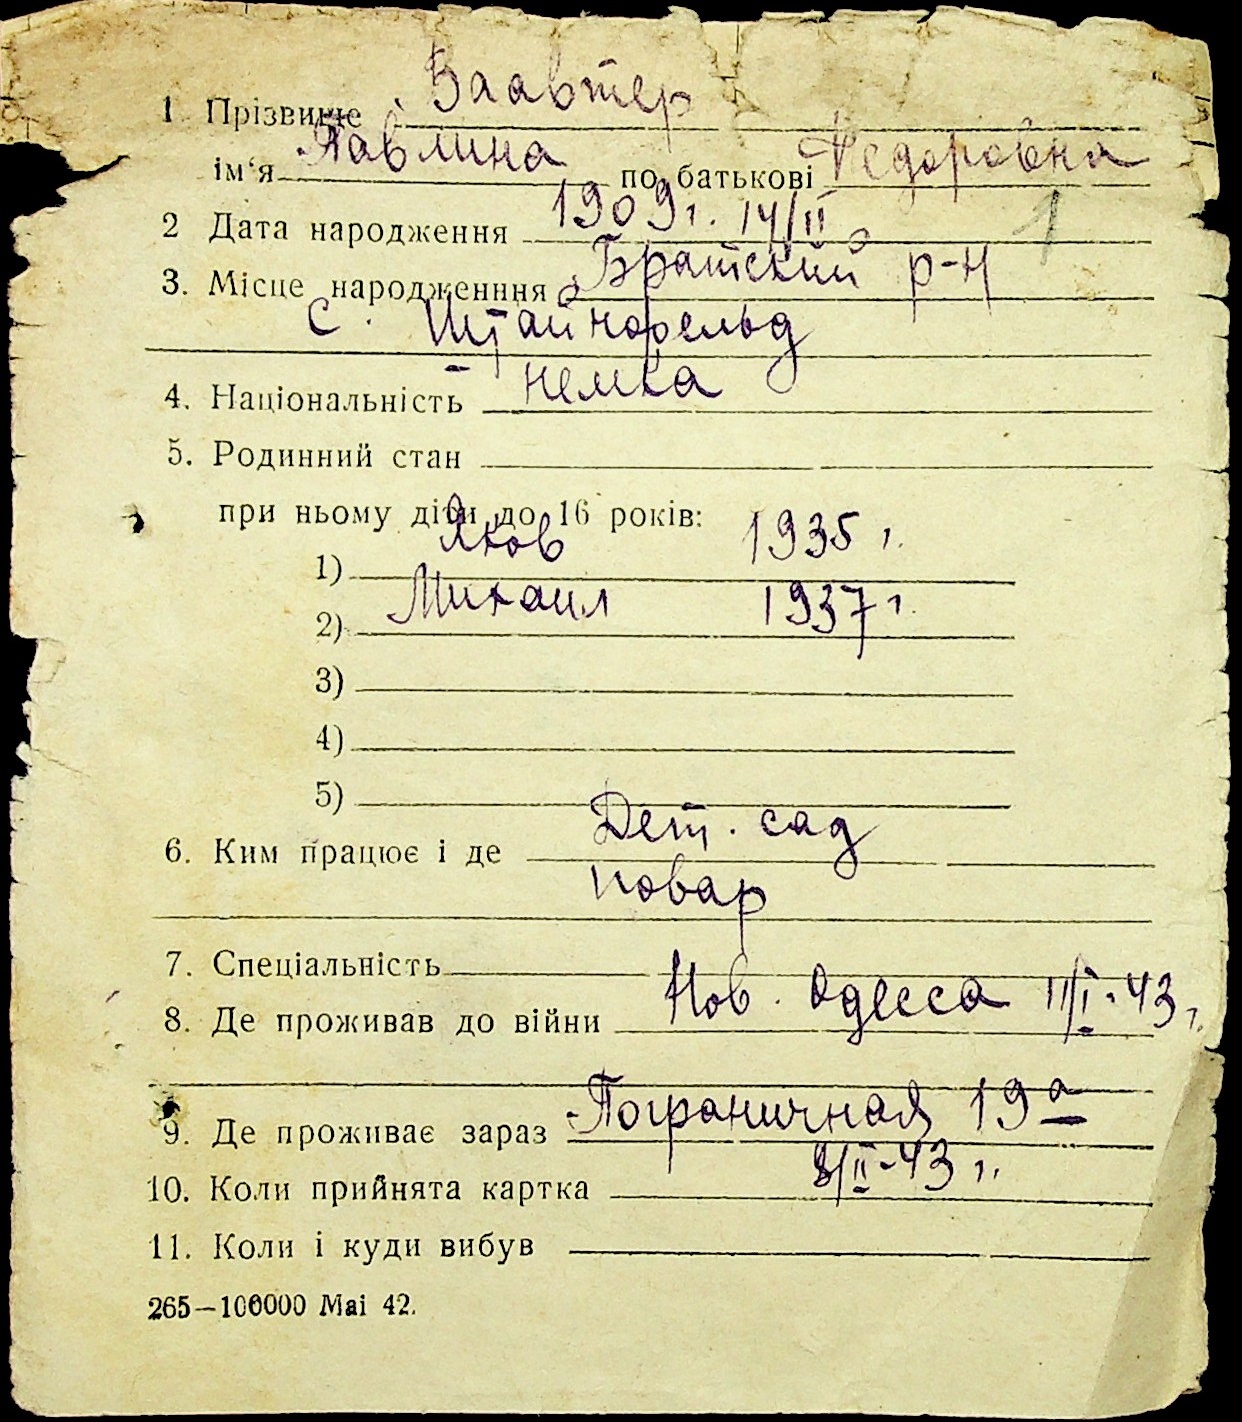 1 Прізвище Ваавтер
ім'я Павлина по батькові Федоровна
2 Дата народження 1909 г. 14/II
1
3. Місце народженння Братский р-н
с. Штайнфельд
4. Національність немка
5. Родинний стан
при ньому діти до 16 років:
1) Яков 1935 г.
2) Михаил 1937 г.
3)
4)
5)
6. Ким працює і де Дет. сад
повар
7. Спеціальність
8. Де проживав до війни Нов. Одесса 11/I-43 г.
9. Де проживає зараз Пограничная 19а
10. Коли прийнята картка 8/II-43 г.
11. Коли і куди вибув
265—100000 Mai 42.